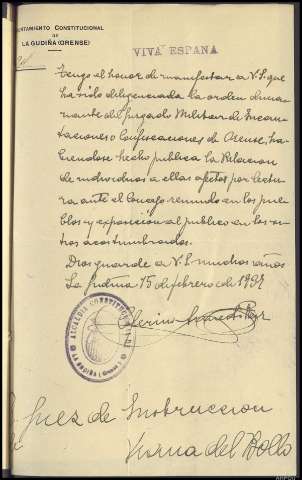 AYUNTAMIENTO CONSTITUCIONAL
DE
LA GUDIÑA (ORENSE)
VIVA ESPAÑA
Tengo el honor de manifestar a V.S. que
ha sido diligenciada la orden dima-
nante del Juzgado Militar de Incau-
taciones o Confiscaciones de Orense, ha-
ciendose hecho publica la Relacion
de individuos a ellas afectos por lectu-
ra ante el Concejo reunido en los pue-
blos y exposicion al publico en los si-
tios acostumbrados.
Dios guarde a V.S. muchos años
La Gudiña 15 de febrero de 1937
ALCALDIA CONSTITUCIONAL
LA GUDIÑA
(Orense)
Juez de Instruccion
Viana del Bollo